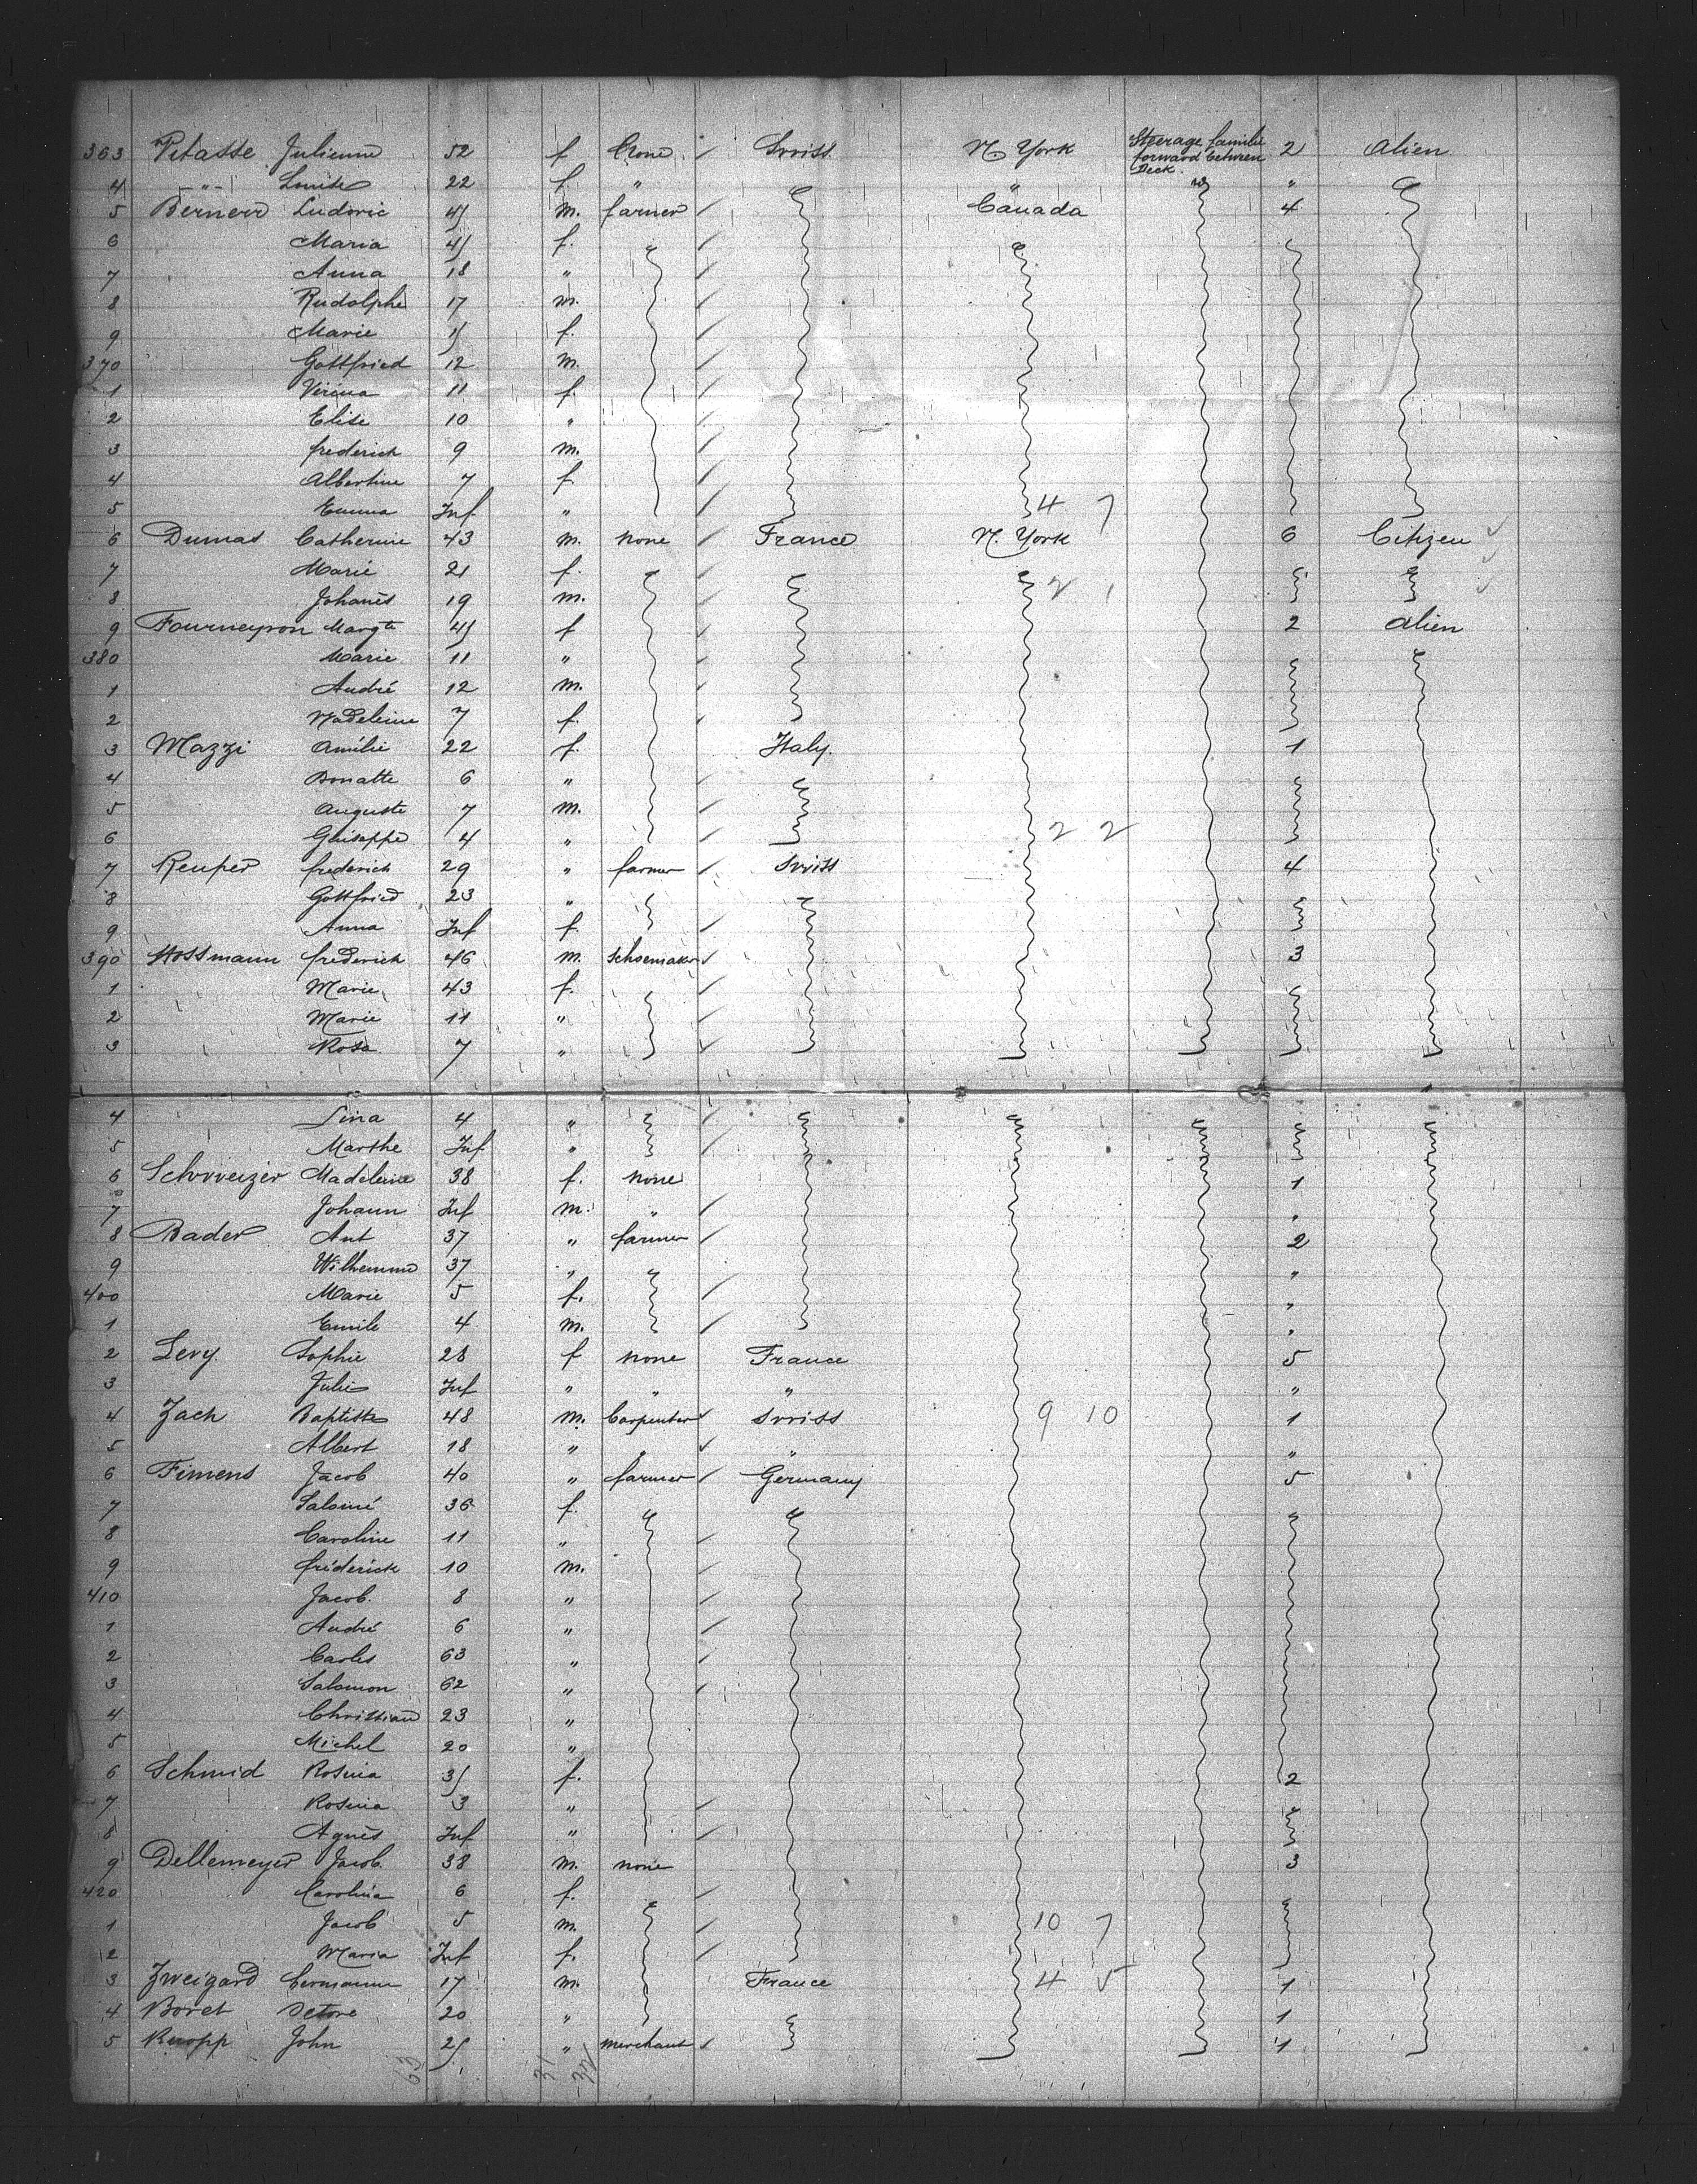 363 Petasse Julienne 52 f None Swiss N York Steerage familie forward between Deck. 2 Alien
4 -"- Louise 22 f " " " "
5 Berner Ludovic 45 m. farmer Canada 4
6 Maria 45 f.
7 Anna 18 "
8 Rudolphe 17 m.
9 Marie 15 f.
370 Gottfried 12 m.
1 Verena 11 f.
2 Elise 10 "
3 frederich 9 m.
4 Albertine 7 f.
5 Emma Inf " 4 7
6 Dumas Catherine 43 m. none France N. York 6 Citizen
7 Marie 21 f. 2 1
8 Johanès 19 m.
9 Fourneyron Margte 45 f 2 Alien
380 Marie 11 "
1 André 12 m.
2 Madeleine 7 f.
3 Mazzi Amélie 22 f. Italy. 1
4 Donatte 6 "
5 Auguste 7 m.
6 Giuseppe 4 " 2 2
7 Reuper frederich 29 " farmer Swiss 4
8 Gottfried 23 "
9 Anna Inf f.
390 Hossmann frederich 46 m. Schoemaker 3
1 Marie 43 f.
2 Marie 11 "
3 Rosa 7 "
4 Lina 4 "
5 Marthe Inf "
6 Schweizer Madeleine 38 f. none 1
7 Johann Inf m. " "
8 Bader Ant 37 " farmer 2
9 Wilhemme 37 " "
400 Marie 5 f. "
1 Emile 4 m. "
2 Levy Sophie 28 f none France 5
3 Julie Inf " " " "
4 Zach Baptiste 48 m. Carpenter Swiss 9 10 1
5 Albert 18 " " " "
6 Fimens Jacob 40 " farmer Germany 5
7 Salomé 36 f.
8 Caroline 11 "
9 fréderick 10 m.
410 Jacob. 8 "
1 André 6 "
2 Carles 63 "
3 Salomon 62 "
4 Christian 23 "
5 Michel 20 "
6 Schmid Rosina 35 f. 2
7 Rosina 3 "
8 Agnès Inf "
9 Dellemeyer Jacob 38 m. none 3
420 Carolina 6 f.
1 Jacob 5 m. 10 7
2 Maria Inf f.
3 Zweigard Hermann 17 m. France 4 5 1
4 Boret 20 " 1
5 Knopp John 25 " merchant 1
63 31 32